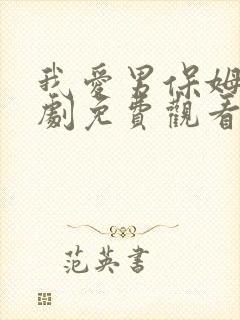 我愛男保姆
劇免費觀看
范英書